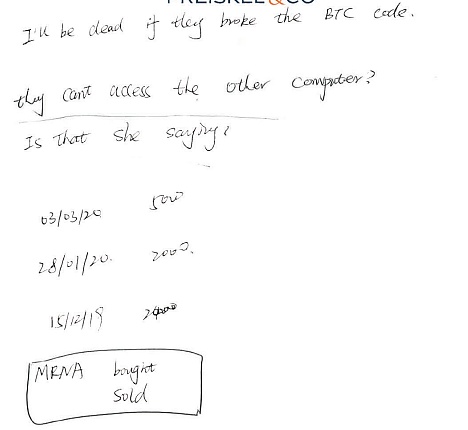 PREISKEL&CO
I'll be dead if they broke the BTC code.
they can't access the other computer?
Is that she saying?
03/03/20 5000
28/01/20. 2000.
15/12/19
MRNA bought
sold